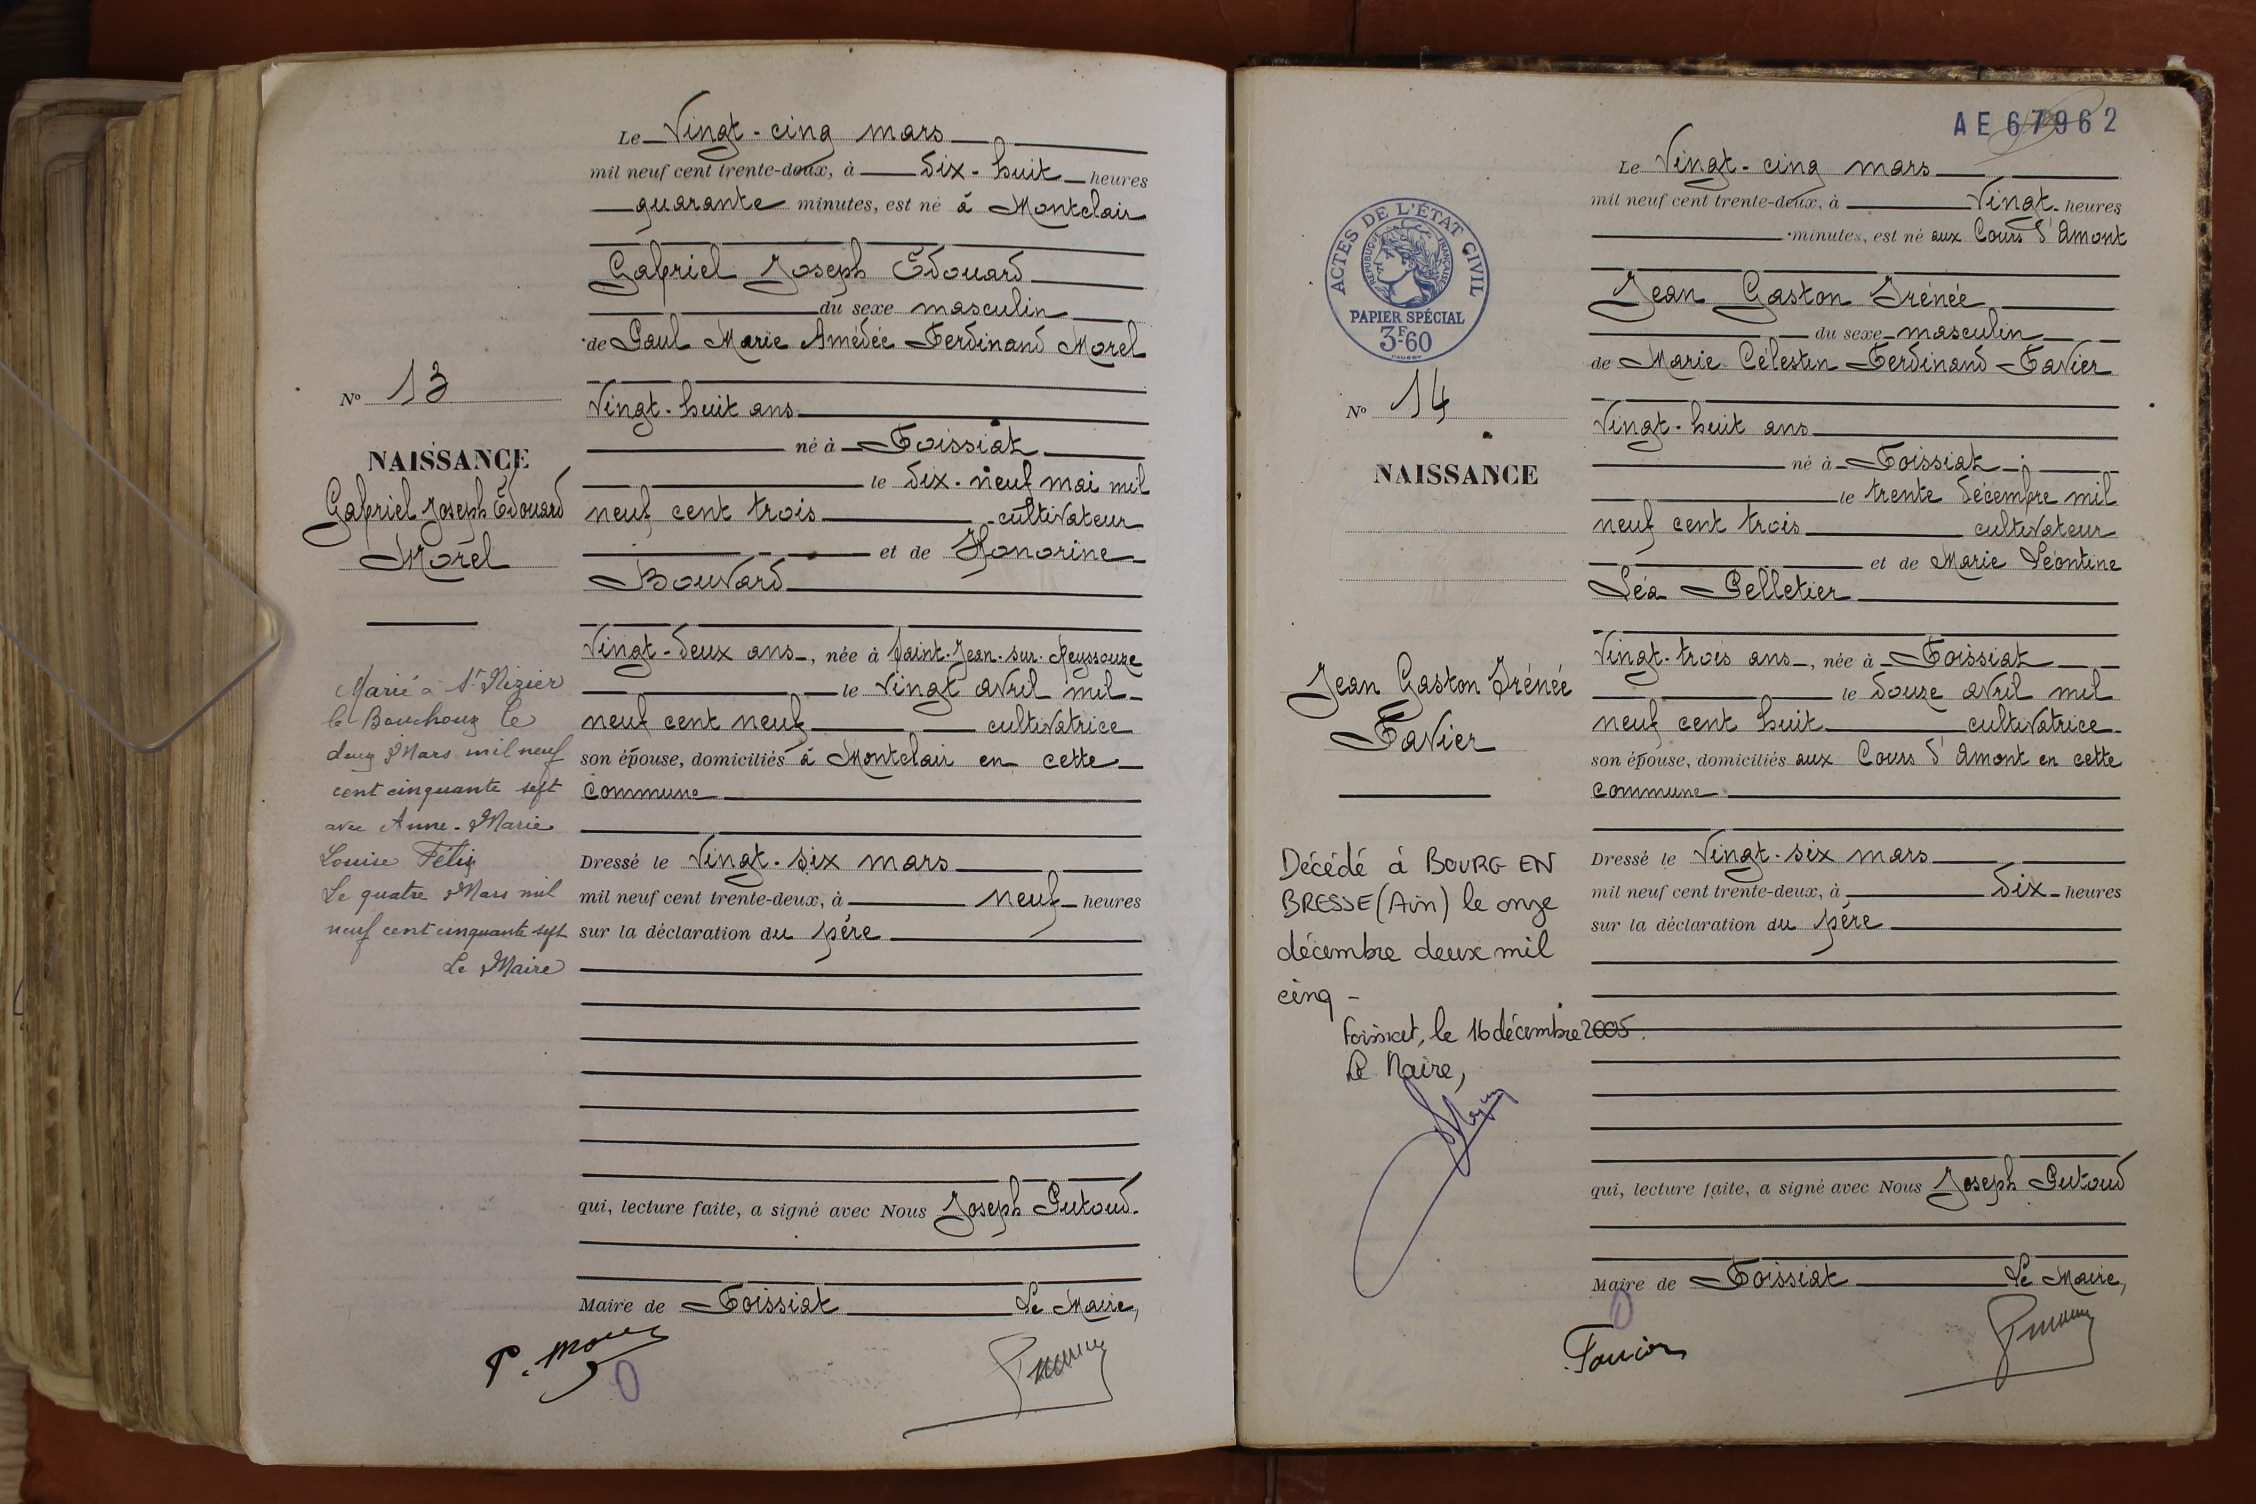 Le Vingt-cinq mars
mil neuf cent trente-deux, à dix-huit heures
quarante minutes, est né à Montclair
Gabriel Joseph Édouard
du sexe masculin
de Paul Marie Amédée Ferdinand Morel
Vingt-huit ans
né à Foissiat
le dix-neuf mai mil
neuf cent trois cultivateur
et de Honorine
Bouvard
Vingt-deux ans, née à Saint-Jean-sur-Reyssouze
le vingt avril mil
neuf cent neuf cultivatrice
son épouse, domiciliés à Montclair en cette
commune
Dressé le Vingt-six mars
mil neuf cent trente-deux, à neuf heures
sur la déclaration du père
qui, lecture faite, a signé avec Nous Joseph Putoud.
Maire de Foissiat Le Maire,
N° 13
NAISSANCE
Gabriel Joseph Édouard
Morel
Marié à St Nizier
le Bouchoux le
deux Mars mil neuf
cent cinquante sept
avec Anne-Marie
Louise Félix
Le quatre Mars mil
neuf cent cinquante sept
Le Maire
AE 67962
Le Vingt-cinq mars
mil neuf cent trente-deux, à Vingt heures
minutes, est né aux Cours d'Amont
Jean Gaston Irénée
du sexe masculin
de Marie Célestin Ferdinand Favier
Vingt-huit ans
né à Foissiat
le trente décembre mil
neuf cent trois cultivateur
et de Marie Léontine
Léa Pelletier
Vingt-trois ans, née à Foissiat
le douze avril mil
neuf cent huit cultivatrice
son épouse, domiciliés aux Cours d'Amont en cette
commune
Dressé le Vingt-six mars
mil neuf cent trente-deux, à dix heures
sur la déclaration du père
qui, lecture faite, a signé avec Nous Joseph Putoud
Maire de Foissiat Le Maire,
ACTES DE L'ÉTAT CIVIL
RÉPUBLIQUE FRANÇAISE
PAPIER SPÉCIAL
3F60
N° 14
NAISSANCE
Jean Gaston Irénée
Favier
Décédé à BOURG EN
BRESSE (Ain) le onze
décembre deux mil
cinq -
Foissiat, le 16 décembre 2005.
Le Maire,